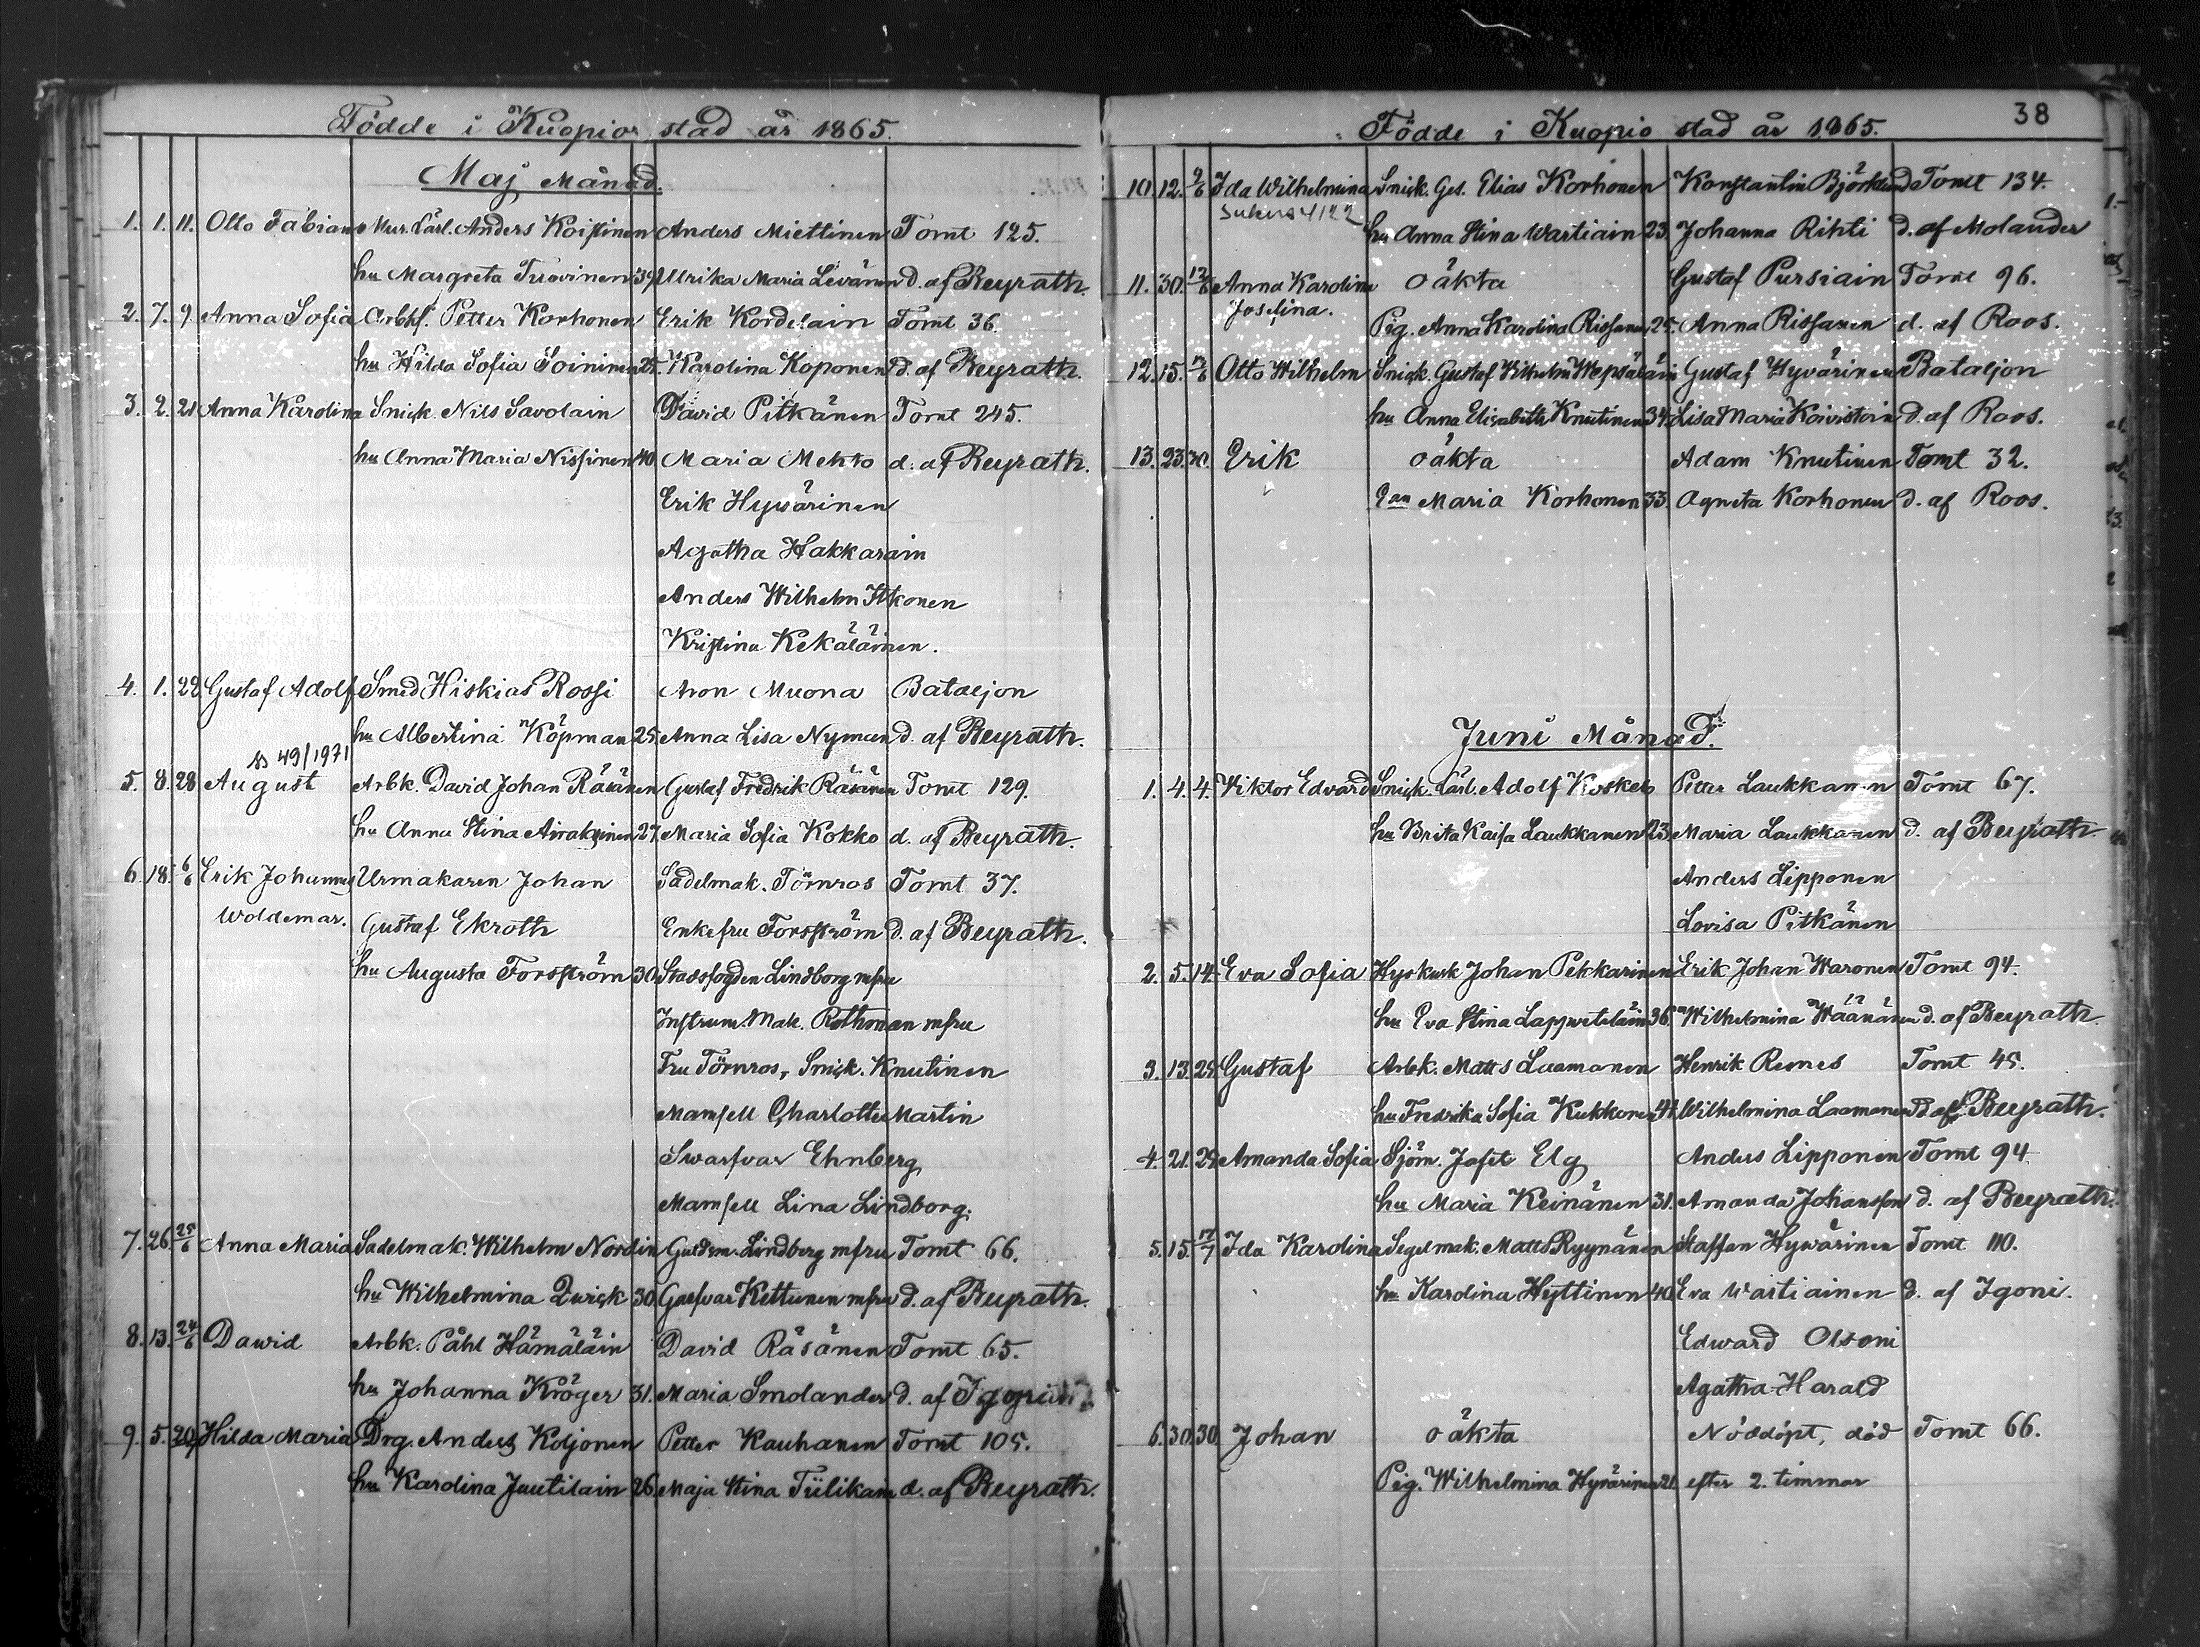 Födde i Kuopio stad år 1865.
Maj Månad.
1. 1. 11. Otto Fabian Mur. Lärl. Anders Koistinen Anders Miettinen Tomt 125.
hu Margreta Turovinen 39. Ulrika Maria Levänen d. af Beyrath.
2. 7. 9. Anna Sofia Arbkf. Petter Korhonen Erik Kordelain Tomt 36.
hu Hilda Sofia Toininen 25. Karolina Koponen d. af Beyrath.
3. 2. 21 Anna Karolina Snick. Nils Savolain David Pitkänen Tomt 245.
hu Anna Maria Nissinen 40. Maria Mehto d. af Beyrath.
Erik Hyvärinen
Agatha Hakkarain
Anders Wilhelm Itkonen
Kristina Kekäläinen.
4. 1. 22. Gustaf Adolf Smed Hiskias Rossi Aron Muona Bataljon
hu Albertina Köpman 25. Anna Lisa Nyman d. af Beyrath.
49/1971
5. 8. 28 August Arbk. David Johan Räsänen Gustaf Fredrik Räsänen Tomt 129.
hu Anna Stina 27. Maria Sofia Kokko d. af Beyrath.
6. 18. 6/6 Erik Johannes Urmakaren Johan Sadelmak. Törnros Tomt 37.
Woldemar. Gustaf Ekroth Enkefru Forsström d. af Beyrath.
hu Augusta Forsström 30. Stadsfogden Lindborg mfru
Instrum. Mak. Rothman mfru
Fru Törnros, Snick. Knutinen
Mamsell Charlotte Martin
Swarfvar Ehnberg
Mamsell Lina Lindborg.
7. 26. 25/6 Anna Maria Sadelmak. Wilhelm Nordin Guldsm. Lindberg mfru Tomt 66.
hu Wilhelmina Qwick 30. Garfvar Kettunen mfru d. af Beyrath.
8. 13. 24/6 Dawid Arbk. Påhl Hämäläin David Räsänen Tomt 65.
hu Johanna Kröger 31. Maria Smolander d. af Igoni
9. 5. 20/ Hilda Maria Drg. Anders Koljonen Petter Kauhanen Tomt 105.
hu Karolina Juutilain 26. Maja Stina Tiilikain d. af Beyrath.
38
Födde i Kuopio stad år 1865.
10. 12. 9/6 Ida Wilhelmina Snick. Ges. Elias Korhonen Konstantin Björklund Tomt 134.
4122
hu Anna Stina Wartiain 23. Johanna Rihti d. af Molander
11. 30. 12/6 Anna Karolina oäkta Gustaf Pursiain Tomt 96.
Josefina.
Pig. Anna Karolina Rissanen 25. Anna Rissanen d. af Roos.
12. 15. Otto Wilhelm Snick. Gustaf Wilhelm Wepsäläin Gustaf Hyvärinen Bataljon
hu Anna Elisabeth Knutinen 34. Lisa Maria Koivistoin d. af Roos.
13. 23. 30. Erik oäkta Adam Knutinen Tomt 32.
Maria Korhonen 33. Agneta Korhonen d. af Roos.
Juni Månad.
1. 4. 4. Wiktor Edvard Snick. Lärl. Adolf Koskelo Petter Laukkanen Tomt 67.
hu Brita Kaisa Laukkanen 23. Maria Laukkanen d. af Beyrath
Anders Lipponen
Lovisa Pitkänen
2. 5. 14. Eva Sofia Hyrkusk Johan Pekkarinen Erik Johan Waronen Tomt 94.
hu Eva Stina Lappveteläin 36. Wilhelmina Wäänänen d. af Beyrath.
3. 13. 25. Gustaf Arbk. Matts Laamanen Henrik Remes Tomt 45.
hu Fredrika Sofia Kukkonen 41. Wilhelmina Laamanen d. af Beyrath.
4. 21. 29. Amanda Sofia Sjöm. Josef Elg Anders Lipponen Tomt 94
hu Maria Keinänen 31. Amanda Johansson d. af Beyrath.
5. 15. 17/7 Ida Karolina Segelmak. Matts Ryynänen Staffan Hyvärinen Tomt 110.
hu Karolina Hyttinen 40. Eva Wartiainen d. af Igoni.
Edward Olsoni
Agatha Harald
6. 30. 30. Johan oäkta Nöddöpt, död Tomt 66.
Pig. Wilhelmina Hyvärinen 21. efter 2. timmar